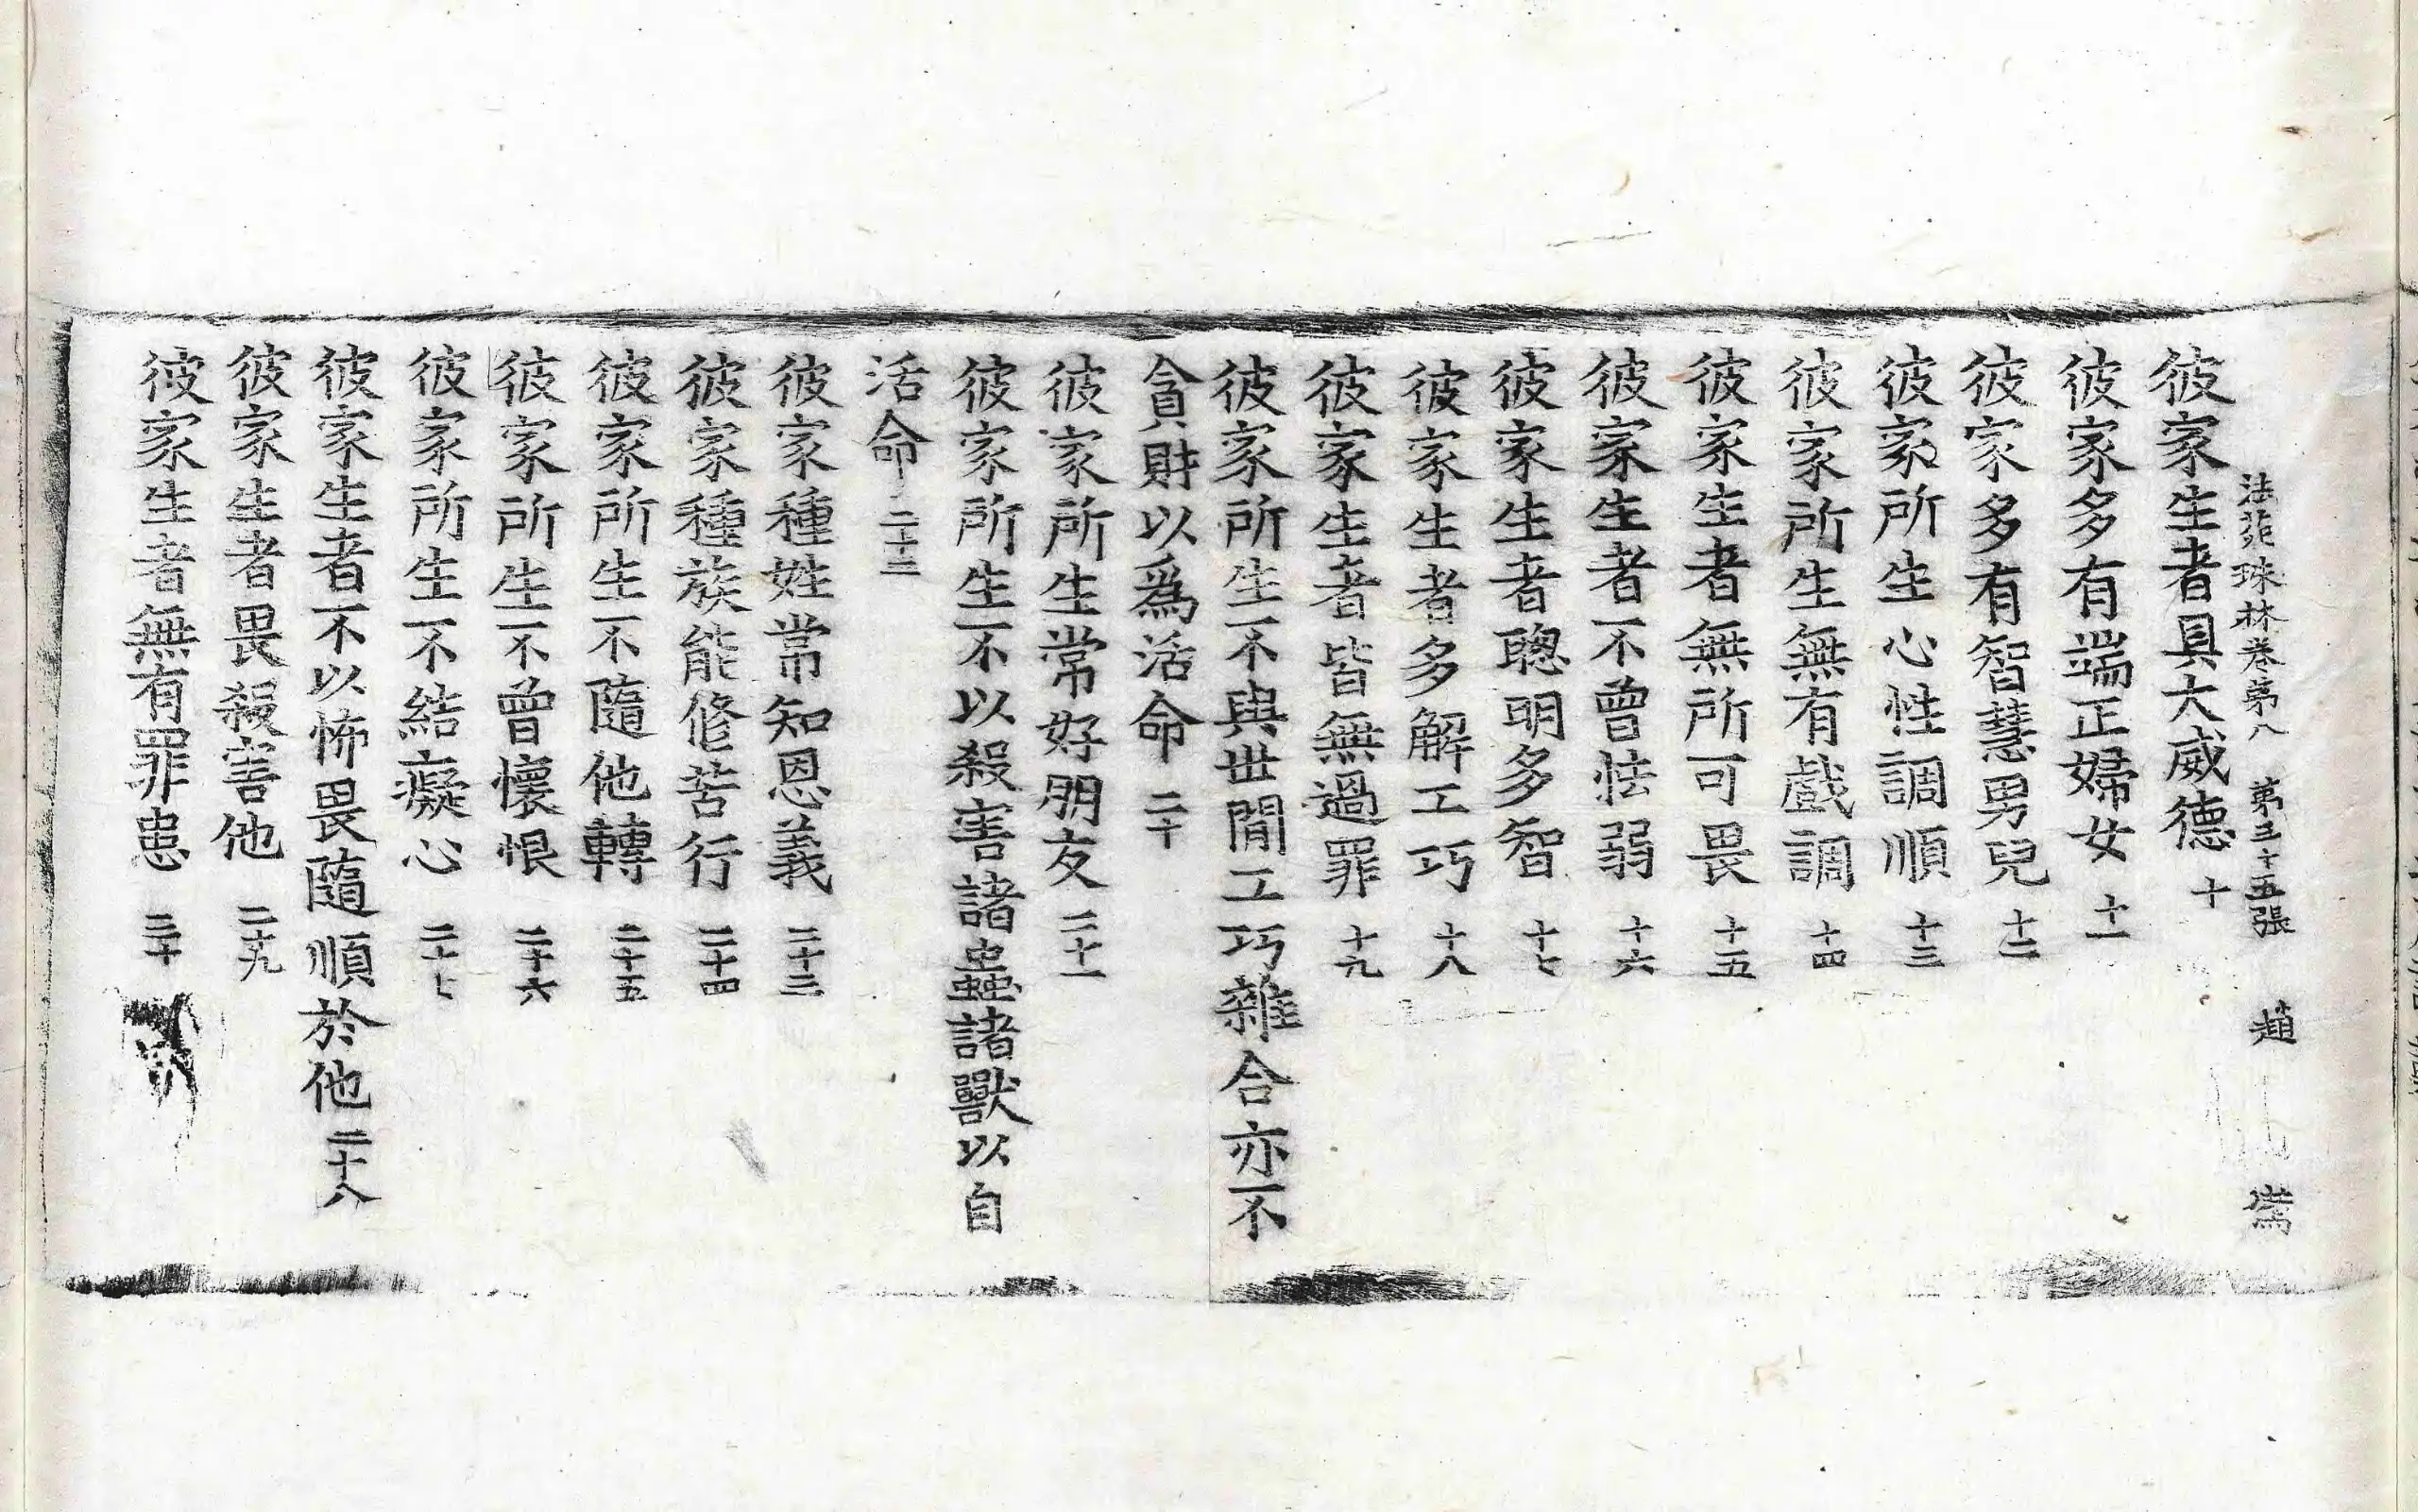 法苑珠林卷第八 第三十五張 趙
彼家生者具大威德 十
彼家多有端正婦女 十一
彼家多有智慧男兒 十二
彼家所生心性調順 十三
彼家所生無有戲調 十四
彼家生者無所可畏 十五
彼家生者不曾怯弱 十六
彼家生者聰明多智 十七
彼家生者多解工巧 十八
彼家生者皆無過罪 十九
彼家所生不與世間工巧雜合亦不
貪財以爲活命 二十
彼家所生常好朋友 二十一
彼家所生不以殺害諸蟲諸獸以自
活命 二十二
彼家種姓常知恩義 二十三
彼家種族能修苦行 二十四
彼家所生不隨他轉 二十五
彼家所生不曾懷恨 二十六
彼家所生不結癡心 二十七
彼家生者不以怖畏隨順於他 二十八
彼家生者畏殺害他 二十九
彼家生者無有罪患 三十